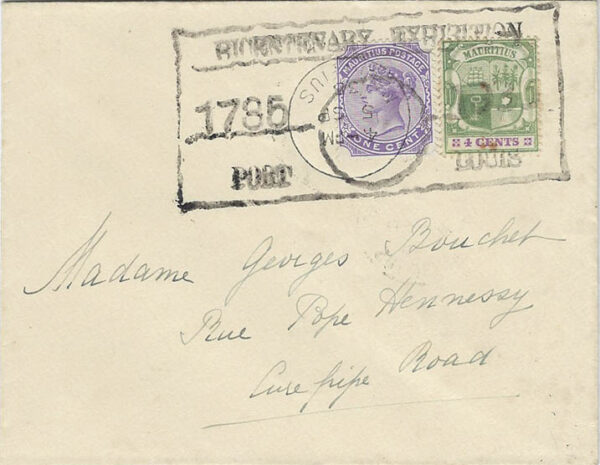 BICENTENARY EXHIBITION
1735
PORT LOUIS
MAURITIUS POSTAGE
ONE CENT
MAURITIUS
4 CENTS
4 PM
5 SP
Madame Georges Bouchet
Rue Pope Hennessy
Curepipe Road